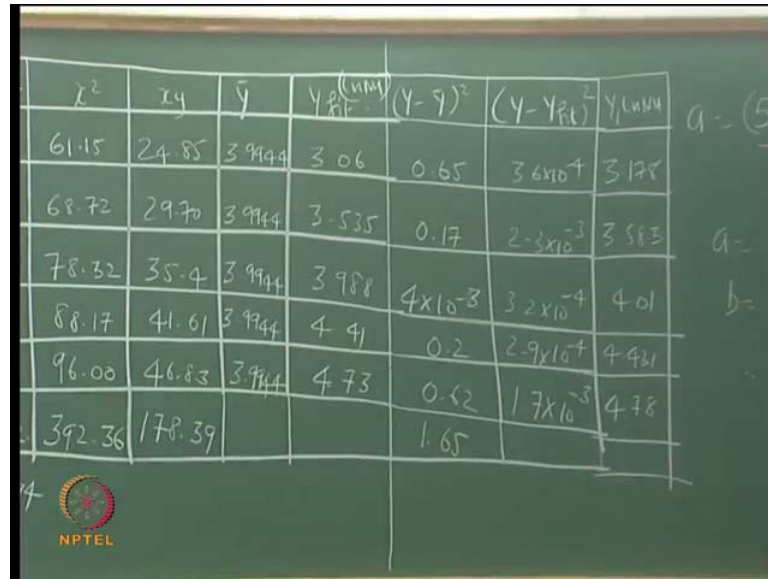 x² xy ȳ Y fit (ln Nu) (Y - ȳ)² (Y - Yfit)² Y, ln Nu
61.15 24.85 3.9944 3.06 0.65 3.6x10⁻⁴ 3.178
68.72 29.70 3.9944 3.535 0.17 2.3x10⁻³ 3.583
78.32 35.4 3.9944 3.988 4x10⁻³ 3.2x10⁻⁴ 4.01
88.17 41.61 3.9944 4.41 0.2 2.9x10⁻⁴ 4.431
96.00 46.83 3.9944 4.73 0.62 1.7x10⁻³ 4.78
392.36 178.39 1.65
a = (5
a =
b =
4
NPTEL